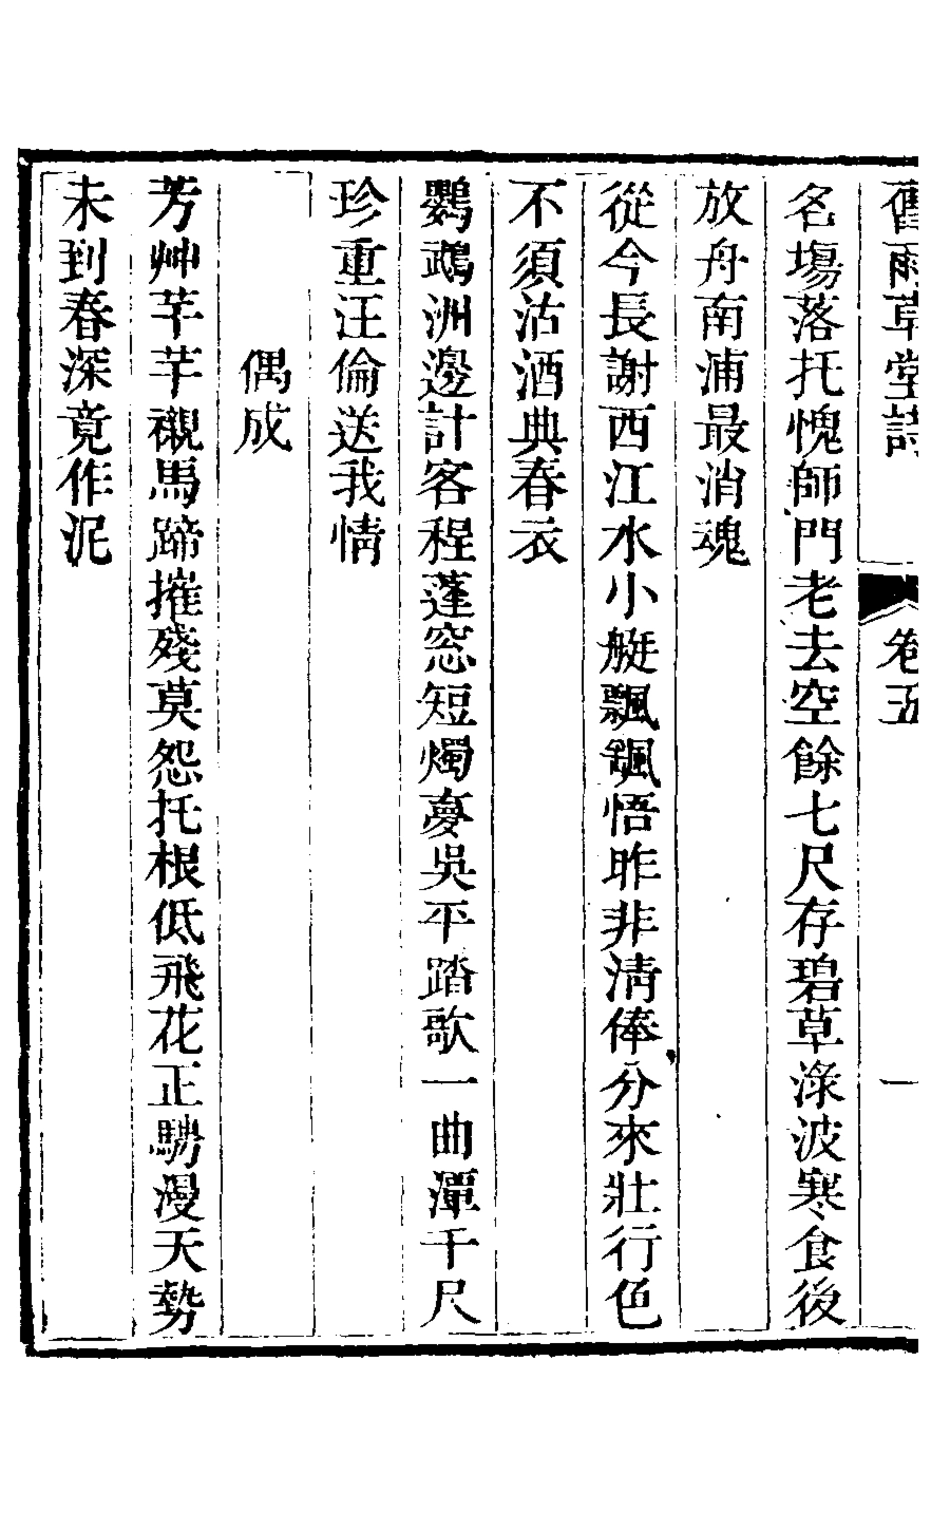 舊雨草堂詩 卷五 一
名塲落托愧師門老去空餘七尺存碧草渌波寒食後
放舟南浦最消魂
從今長謝西江水小艇飄颻悟昨非淸俸分來壯行色
不須沽酒典春衣
鸚鵡洲邊計客程蓬窓短燭夢吳平踏歌一曲潭千尺
珍重汪倫送我情
偶成
芳艸芊芊襯馬蹄摧殘莫怨托根低飛花正騁漫天勢
未到春深竟作泥